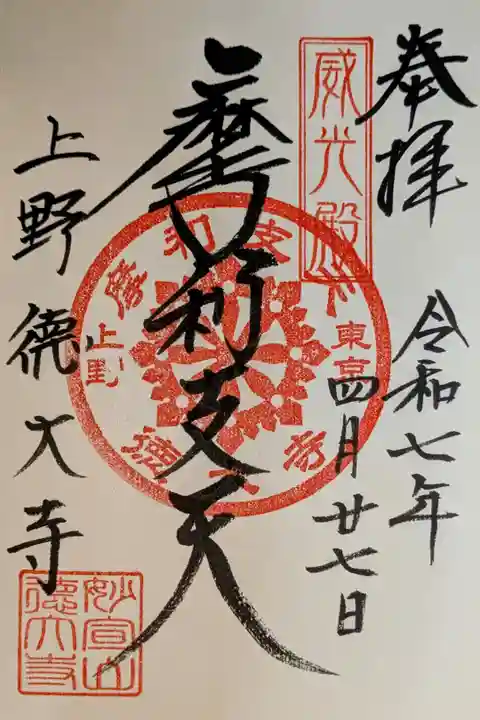 奉拝
令和七年
四月廿七日
威光殿
摩利支天
摩利支天
東京
上野
徳大寺
上野徳大寺
妙宣山
徳大寺